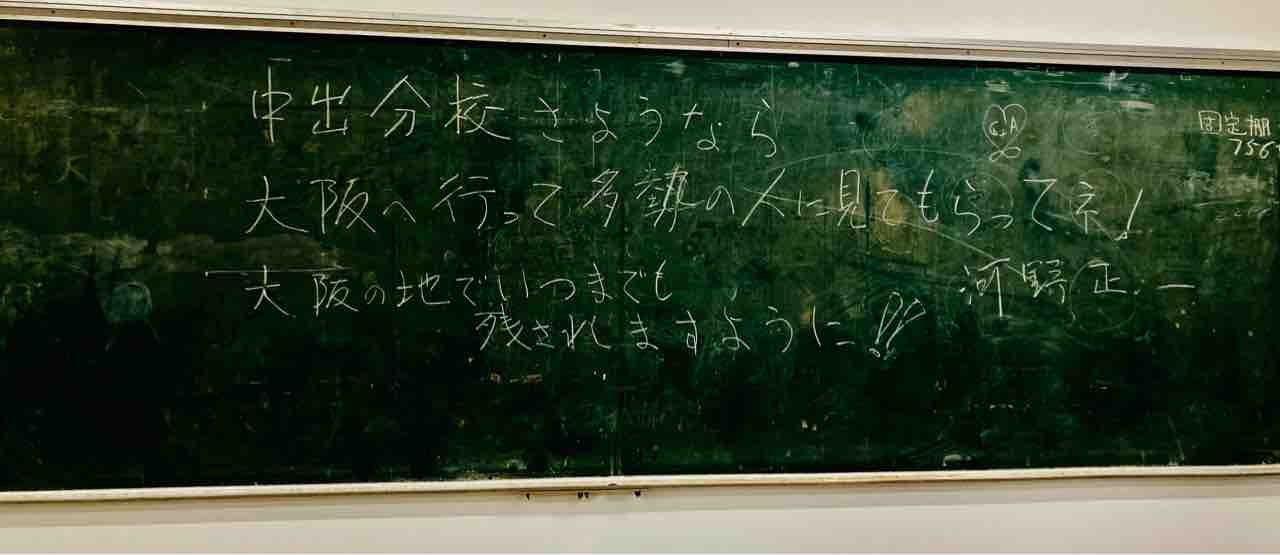 中出分校さようなら
G.A
固定棚
756
大阪へ行って多勢の人に見てもらってネ!
大阪の地でいつまでも
河野正一
残されますように!!